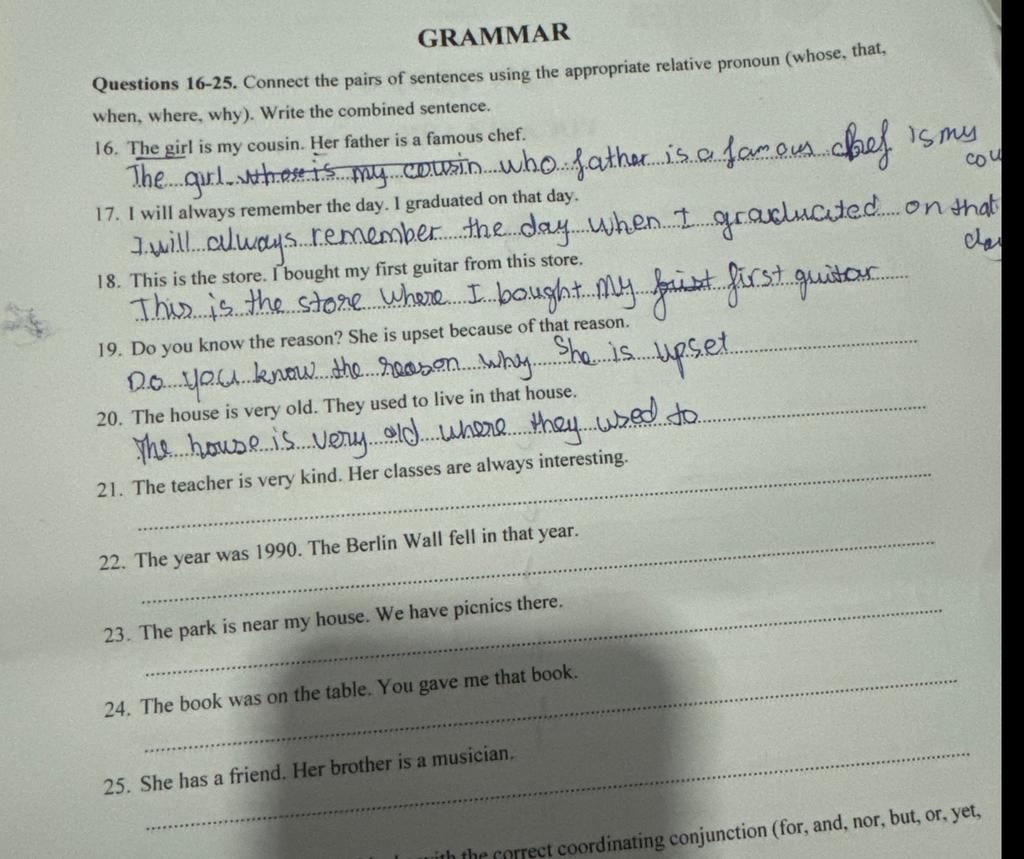 GRAMMAR
Questions 16-25. Connect the pairs of sentences using the appropriate relative pronoun (whose, that,
when, where, why). Write the combined sentence.
16. The girl is my cousin. Her father is a famous chef.
The girl whose is my cousin who father is a famous chef is my
cou
17. I will always remember the day. I graduated on that day.
I will always remember the day when I graducated on that
day
18. This is the store. I bought my first guitar from this store.
This is the store where I bought my first guitar
19. Do you know the reason? She is upset because of that reason.
Do you know the reason why she is upset
20. The house is very old. They used to live in that house.
The house is very old where they used to
21. The teacher is very kind. Her classes are always interesting.
22. The year was 1990. The Berlin Wall fell in that year.
23. The park is near my house. We have picnics there.
24. The book was on the table. You gave me that book.
25. She has a friend. Her brother is a musician.
with the correct coordinating conjunction (for, and, nor, but, or, yet,